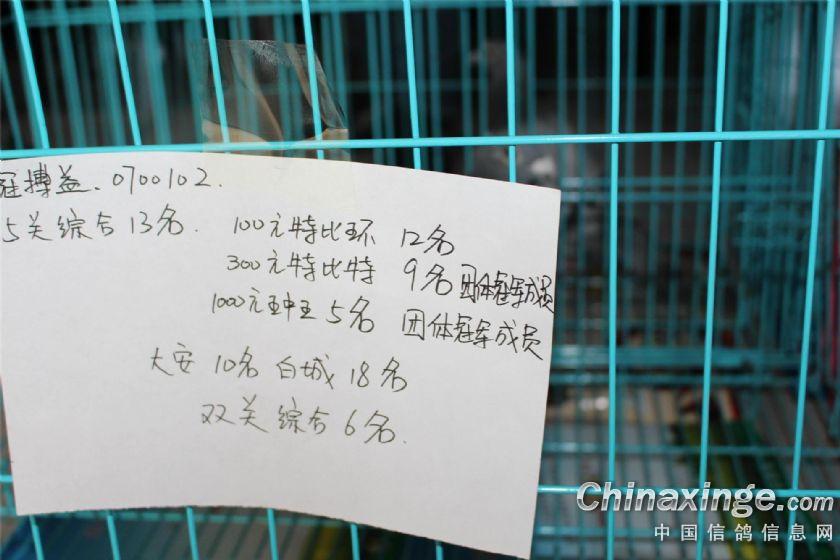 冠搏益.0700102.
5关综合13名. 100元特比环 12名
300元特比特 9名 团体冠军成员
1000元王中王 5名 团体冠军成员
大安 10名 白城 18名
双关综合6名.
Chinaxinge.com
中国信鸽信息网